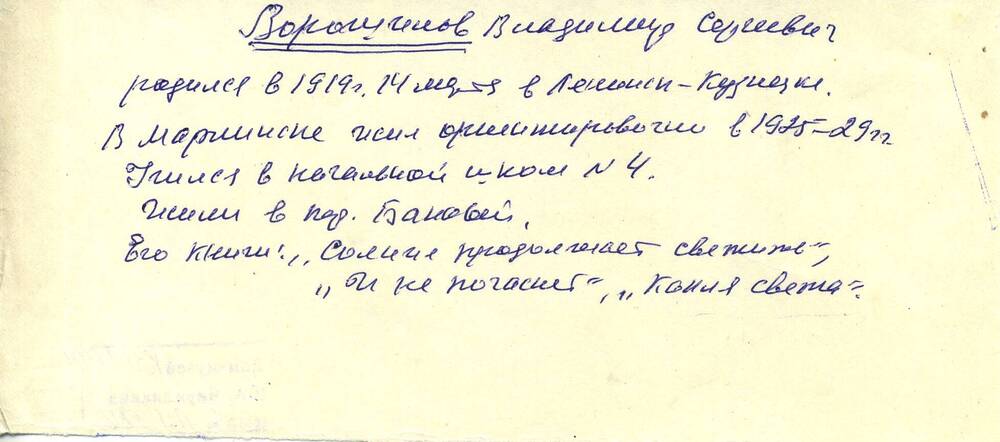 Ворошилов Владимир Сергеевич
родился в 1919г. 14 марта в Ленинск-Кузнецке.
В Мариинске жил ориентировочно в 1925-29гг
Учился в начальной школе N 4.
Жили в пер. Банковой,
Его книги: „Солнце продолжает светить",
„И не погаснет", „Капля света".